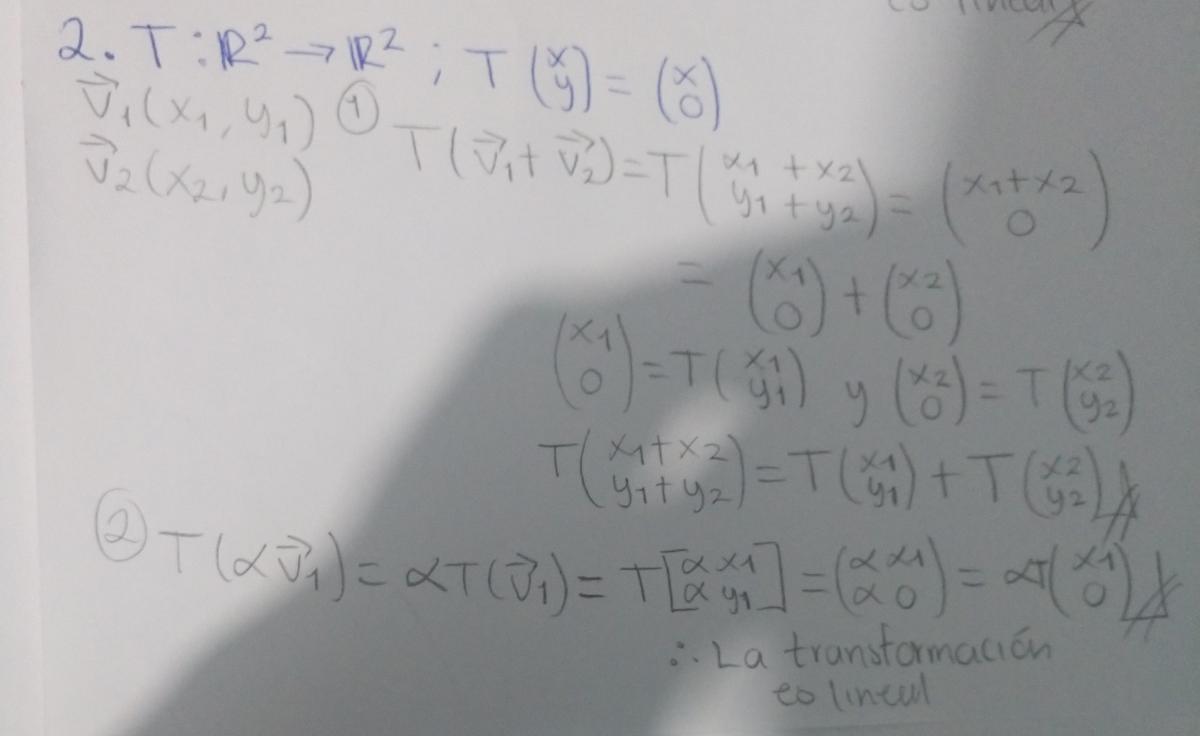 es lineal
2. T : ℝ² → ℝ² ; T (x y) = (x 0)
v⃗1(x1, y1) ① T(v⃗1 + v⃗2) = T (x1 + x2 y1 + y2) = (x1 + x2 0)
v⃗2(x2, y2)
= (x1 0) + (x2 0)
(x1 0) = T (x1 y1) y (x2 0) = T (x2 y2)
T (x1 + x2 y1 + y2) = T (x1 y1) + T (x2 y2)
② T(αv⃗1) = αT(v⃗1) = T [αx1 αy1] = (αx1 α0) = αT (x1 0)
∴ La transformación
es lineal